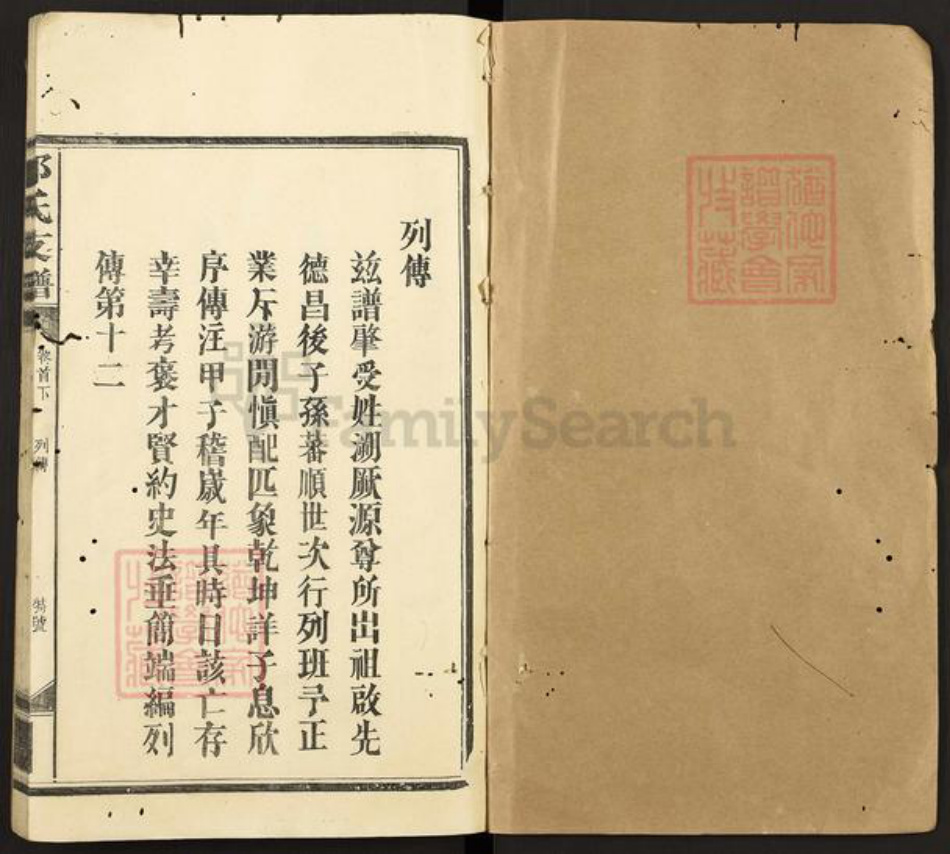 列傳
茲譜肇受姓溯厥源尊所出祖啟先
德昌後子孫蕃順世次行列班予正
業斥游閒慎配匹象乾坤詳子息欣
序傳注甲子稽歲年具時日該亡存
幸壽考褒才賢約史法垂簡端編列
傳第十二
氏支譜
卷首下
列傳
特號
FamilySearch
譜學會
特藏